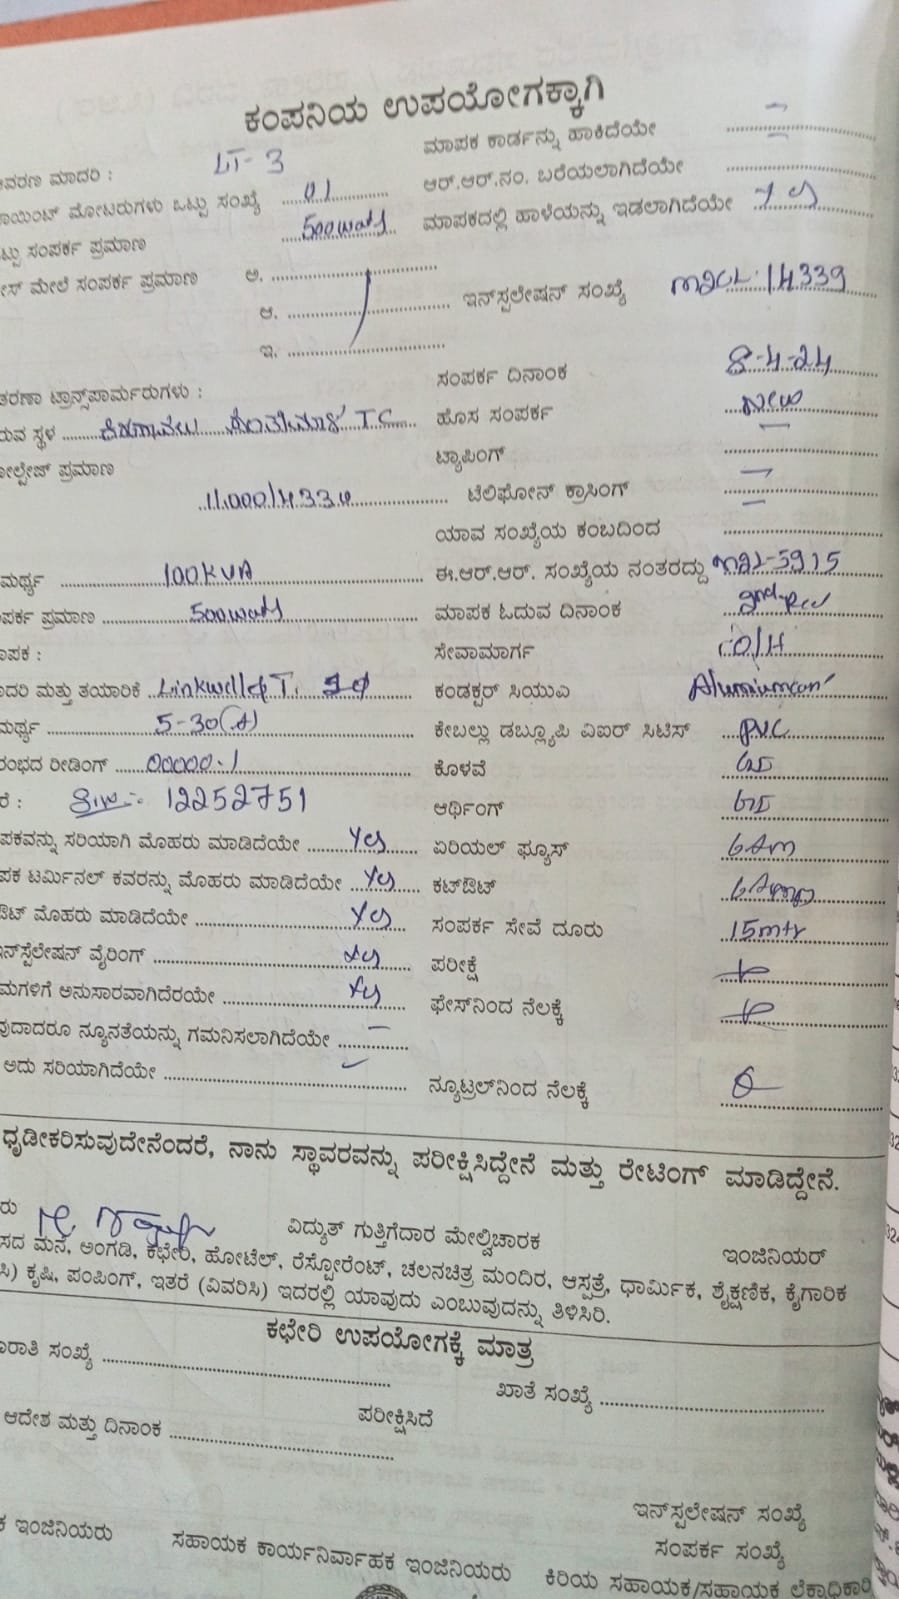 ಕಂಪನಿಯ ಉಪಯೋಗಕ್ಕಾಗಿ
ಆವರಣ ಮಾದರಿ : LT-3 ಮಾಪಕ ಕಾರ್ಡನ್ನು ಹಾಕಿದೆಯೇ
ಾಯಿಂಟ್ ಮೋಟರುಗಳು ಒಟ್ಟು ಸಂಖ್ಯೆ 01 ಆರ್.ಆರ್.ನಂ. ಬರೆಯಲಾಗಿದೆಯೇ
ಟ್ಟು ಸಂಪರ್ಕ ಪ್ರಮಾಣ 500watts ಮಾಪಕದಲ್ಲಿ ಹಾಳೆಯನ್ನು ಇಡಲಾಗಿದೆಯೇ
ೇಸ್ ಮೇಲೆ ಸಂಪರ್ಕ ಪ್ರಮಾಣ ಅ.
ಆ. ಇನ್‌ಸ್ಪಲೇಷನ್ ಸಂಖ್ಯೆ 14339
ಇ.
ಸಂಪರ್ಕ ದಿನಾಂಕ 8-4-24
ತರಣಾ ಟ್ರಾನ್ಸ್‌ಪಾರ್ಮರುಗಳು :
ರುವ ಸ್ಥಳ T.C ಹೊಸ ಸಂಪರ್ಕ New
ೋಲ್ಟೇಜ್ ಪ್ರಮಾಣ ಟ್ಯಾಪಿಂಗ್
11000/433 ಟೆಲಿಫೋನ್ ಕ್ರಾಸಿಂಗ್
ಯಾವ ಸಂಖ್ಯೆಯ ಕಂಬದಿಂದ
ಮರ್ಥ್ಯ 100KVA ಈ.ಆರ್.ಆರ್. ಸಂಖ್ಯೆಯ ನಂತರದ್ದು 5915
ಪರ್ಕ ಪ್ರಮಾಣ 500watts ಮಾಪಕ ಓದುವ ದಿನಾಂಕ
ಾಪಕ : ಸೇವಾಮಾರ್ಗ O/H
ಾದರಿ ಮತ್ತು ತಯಾರಿಕೆ Linkwell ಕಂಡಕ್ಟರ್ ಸಿಯುಎ
ಮರ್ಥ್ಯ 5-30(A) ಕೇಬಲ್ಲು ಡಬ್ಲ್ಯೂಪಿ ವಿಐರ್ ಸಿಟಿಸ್ PVC
ರಂಭದ ರೀಡಿಂಗ್ 00000.1 ಕೊಳವೆ GI
ರೆ : 12252751 ಆರ್ಥಿಂಗ್ GI
ಪಕವನ್ನು ಸರಿಯಾಗಿ ಮೊಹರು ಮಾಡಿದೆಯೇ Yes ಏರಿಯಲ್ ಫ್ಯೂಸ್
ಪಕ ಟರ್ಮಿನಲ್ ಕವರನ್ನು ಮೊಹರು ಮಾಡಿದೆಯೇ Yes ಕಟ್‌ಔಟ್
ಔಟ್ ಮೊಹರು ಮಾಡಿದೆಯೇ Yes ಸಂಪರ್ಕ ಸೇವೆ ದೂರು 15mtr
ಇನ್‌ಸ್ಪೆಲೇಷನ್ ವೈರಿಂಗ್ Yes ಪರೀಕ್ಷೆ
ಮಗಳಿಗೆ ಅನುಸಾರವಾಗಿದೆರಯೇ Yes ಫೇಸ್‌ನಿಂದ ನೆಲಕ್ಕೆ
ವುದಾದರೂ ನ್ಯೂನತೆಯನ್ನು ಗಮನಿಸಲಾಗಿದೆಯೇ
ಅದು ಸರಿಯಾಗಿದೆಯೇ ನ್ಯೂಟ್ರಲ್‌ನಿಂದ ನೆಲಕ್ಕೆ
ಧೃಡೀಕರಿಸುವುದೇನೆಂದರೆ, ನಾನು ಸ್ಥಾವರವನ್ನು ಪರೀಕ್ಷಿಸಿದ್ದೇನೆ ಮತ್ತು ರೇಟಿಂಗ್ ಮಾಡಿದ್ದೇನೆ.
ರು ವಿದ್ಯುತ್ ಗುತ್ತಿಗೆದಾರ ಮೇಲ್ವಿಚಾರಕ ಇಂಜಿನಿಯರ್
ಸದ ಮನೆ, ಅಂಗಡಿ, ಕಛೇರಿ, ಹೋಟೆಲ್, ರೆಸ್ಟೋರೆಂಟ್, ಚಲನಚಿತ್ರ ಮಂದಿರ, ಆಸ್ಪತ್ರೆ, ಧಾರ್ಮಿಕ, ಶೈಕ್ಷಣಿಕ, ಕೈಗಾರಿಕ
ಸಿ) ಕೃಷಿ, ಪಂಪಿಂಗ್, ಇತರೆ (ವಿವರಿಸಿ) ಇದರಲ್ಲಿ ಯಾವುದು ಎಂಬುವುದನ್ನು ತಿಳಿಸಿರಿ.
ಕಛೇರಿ ಉಪಯೋಗಕ್ಕೆ ಮಾತ್ರ
ಾರಾತಿ ಸಂಖ್ಯೆ ಖಾತೆ ಸಂಖ್ಯೆ
ಆದೇಶ ಮತ್ತು ದಿನಾಂಕ ಪರೀಕ್ಷಿಸಿದೆ
ಇನ್‌ಸ್ಪಲೇಷನ್ ಸಂಖ್ಯೆ
ಸಂಪರ್ಕ ಸಂಖ್ಯೆ
ಕ ಇಂಜಿನಿಯರು ಸಹಾಯಕ ಕಾರ್ಯನಿರ್ವಾಹಕ ಇಂಜಿನಿಯರು ಕಿರಿಯ ಸಹಾಯಕ/ಸಹಾಯಕ ಲೆಕ್ಕಾಧಿಕಾರಿ